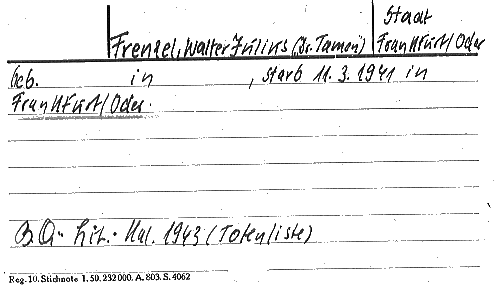 Stadt
Frenzel, Walter Julius (Dr. Tamen) Frankfurt/Oder
geb. in , starb 11.3.1941 in
Frankfurt/Oder.
B.Q. Lit.-Kal. 1943 (Totenliste)
Reg. 10. Stichnote 1. 50. 232000. A. 803. S. 4062